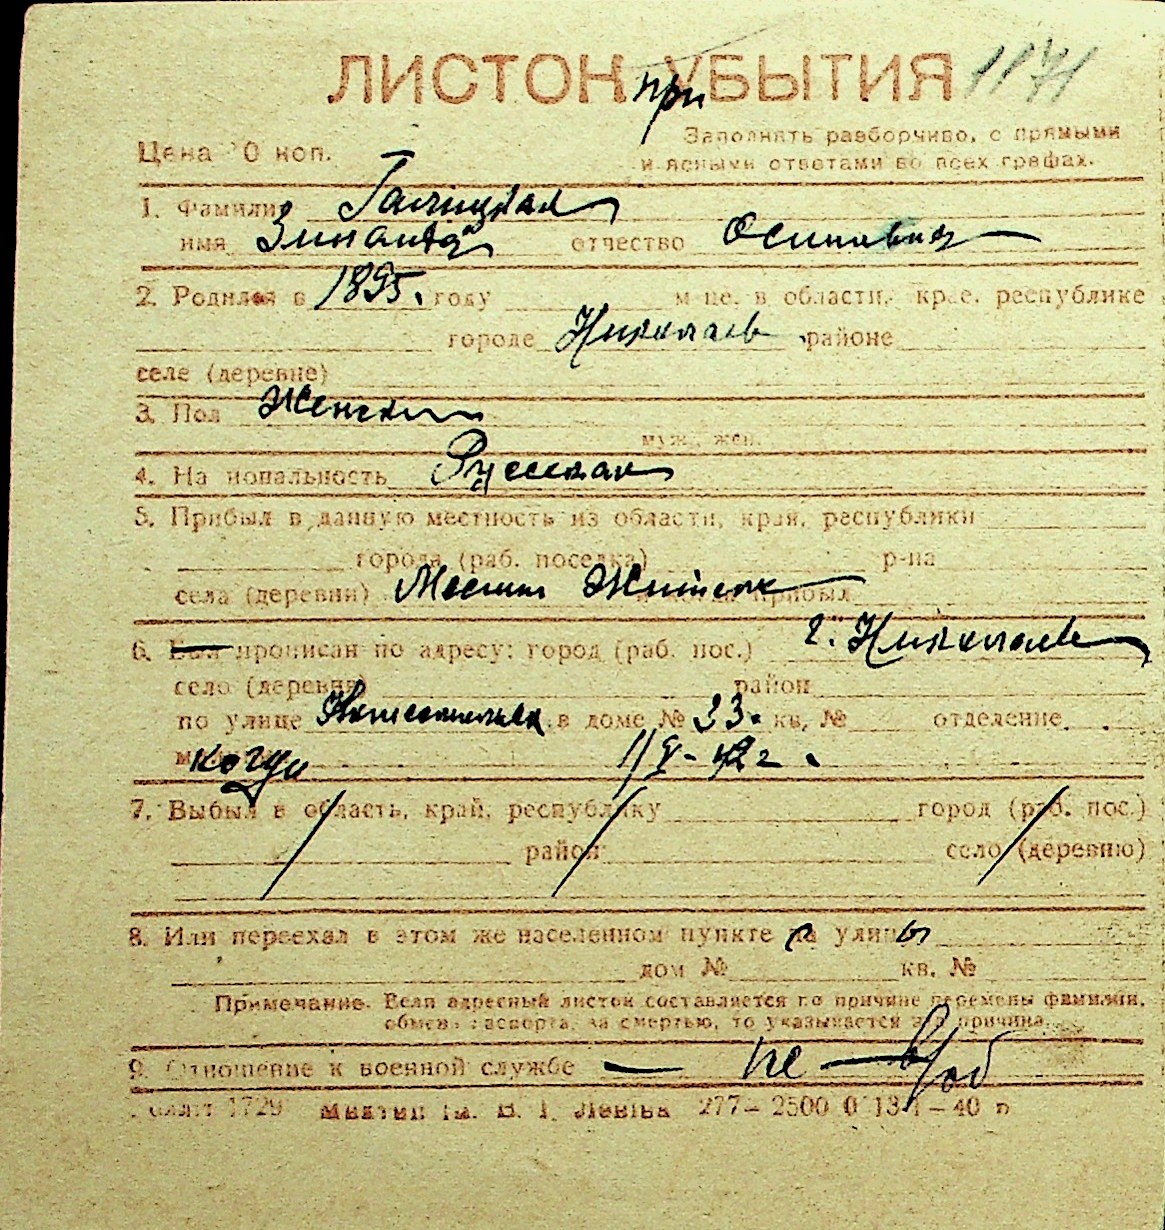 ЛИСТОК УБЫТИЯ 1171
при
Заполнять разборчиво, с прямыми
Цена 10 коп.
и ясными ответами во всех графах.
1. Фамилия Галицкая
имя Зинаида отчество Осиповна
2. Родился в 1895. году м-це. в области, крае, республике
городе Николаев районе
селе (деревне)
3. Пол Женский
муж., жен.
4. Национальность Русская
5. Прибыл в данную местность из области, края, республики
города (раб. поселка) р-на
села (деревни) Местн Житель и когда прибыл
6. Был прописан по адресу: город (раб. пос.) г. Николаев
село (деревня) район
по улице в доме № 33. кв. № отделение
когда 1/V-42 г.
7. Выбыл в область, край, республику город (раб. пос.)
район село (деревню)
8. Или переехал в этом же населенном пункте с улицы
дом № кв. №
Примечание. Если адресный листок составляется по причине перемены фамилии,
обмена паспорта, за смертью, то указывается эта причина.
9. Отношение к военной службе — не — в/об
1729 Леніна 277–2500 – 40 р